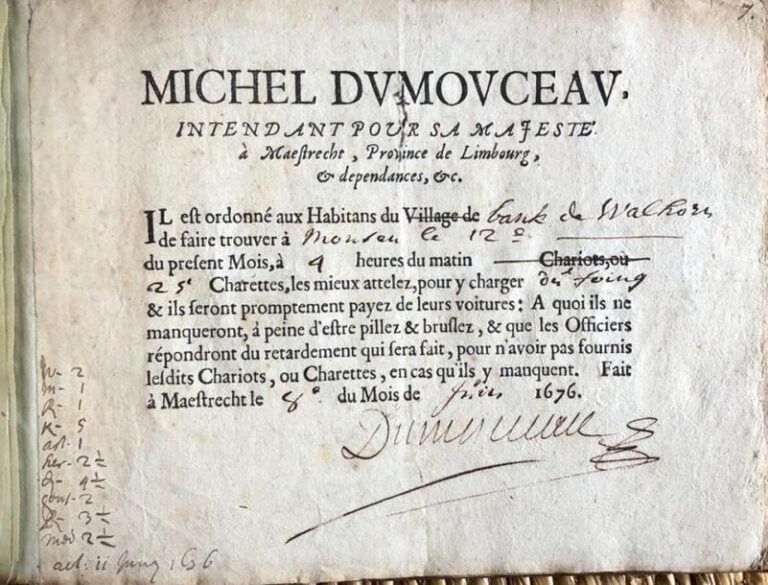 7.
MICHEL DVMOVCEAV,
INTENDANT POUR SA MAJESTÉ
à Maeſtrecht, Province de Limbourg,
& dependances, &c.
IL est ordonné aux Habitans du Village de bank de Walhorn
de faire trouver à le 12e
du present Mois, à 4 heures du matin Chariots, ou
25 Charettes, les mieux attelez, pour y charger du foing
& ils ſeront promptement payez de leurs voitures: A quoi ils ne
manqueront, à peine d'eſtre pillez & bruſlez, & que les Officiers
répondront du retardement qui ſera fait, pour n'avoir pas fournis
leſdits Chariots, ou Charettes, en cas qu'ils y manquent. Fait
à Maeſtrecht le 8e du Mois de Juin 1676.
Dumouceau
W- 2
m- 1
R- 1
K- 5
aſt. 1
her- 2½
E- 4½
2
3½
2½
act. 11 Juny 1676